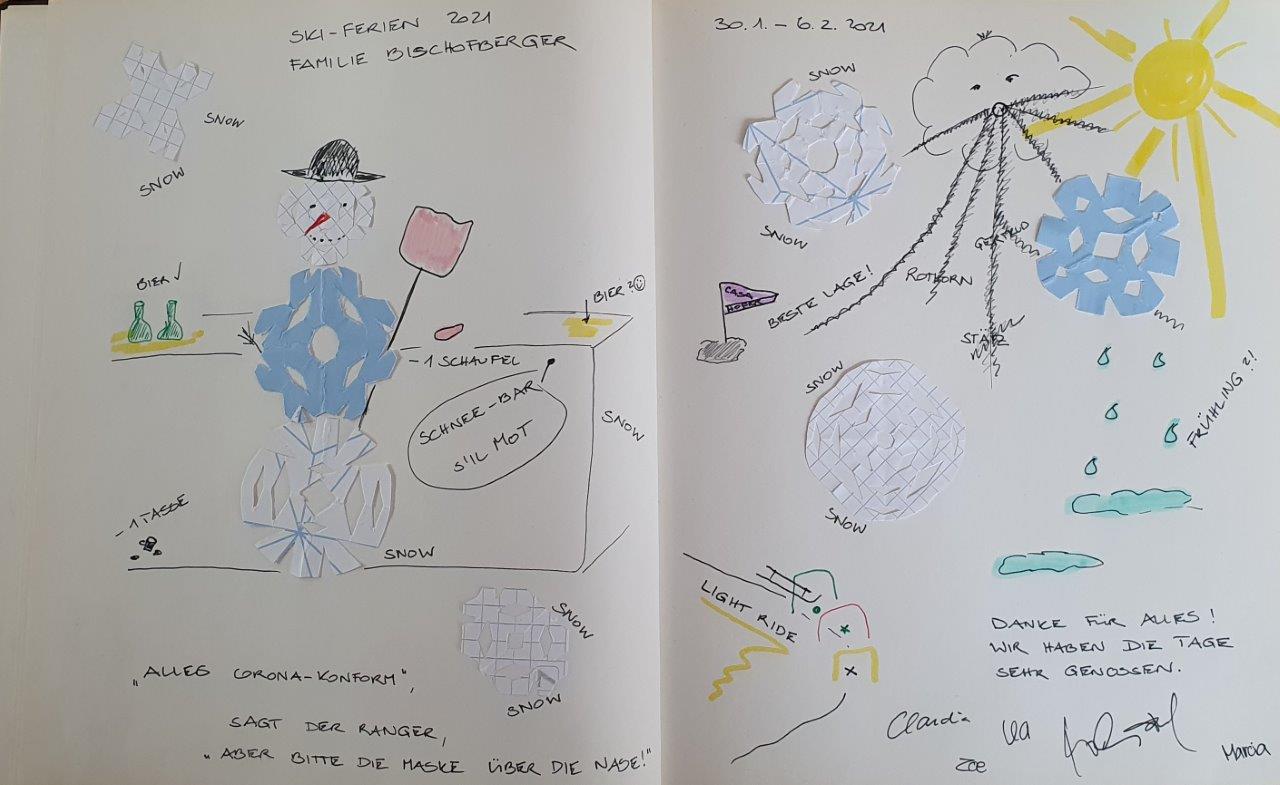 SKI-FERIEN 2021
FAMILIE BISCHOFBERGER
SNOW
SNOW
BIER √
BIER?
- 1 SCHAUFEL
SCHNEE-BAR
S'IL MOT
SNOW
- 1 TASSE
SNOW
SNOW
SNOW
„ALLES CORONA-KONFORM",
SAGT DER RANGER,
„ABER BITTE DIE MASKE ÜBER DIE NASE!"
30.1. – 6.2. 2021
SNOW
SNOW
CASA
BESTE LAGE!
ROTHORN
STÄTZ
FRÜHLING?!
SNOW
SNOW
LIGHT RIDE
DANKE FÜR ALLES!
WIR HABEN DIE TAGE
SEHR GENOSSEN.
Claudia
Zoe
Marcia